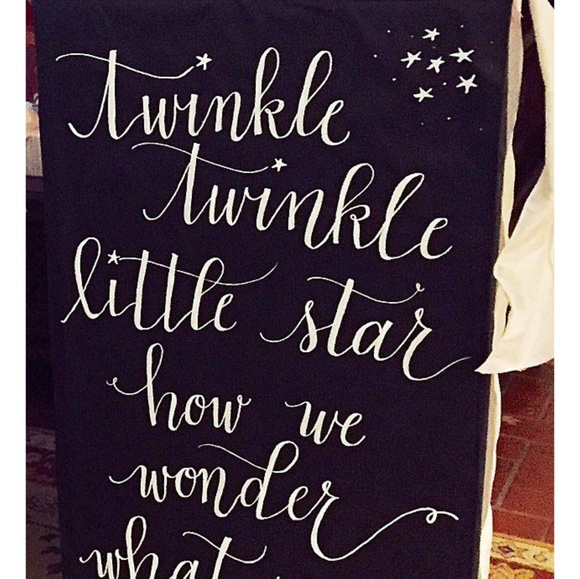 twinkle
twinkle
little star
how we
wonder
what